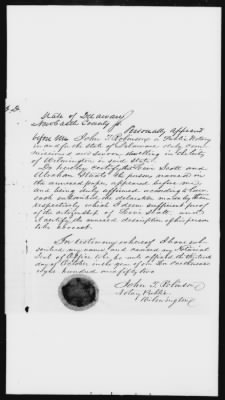 State of Delaware
New Castle County
Personally appeared
before me John T. Robinson a Public Notary
in and for the State of Delaware duly com
missioned and sworn dwelling in the City
of Wilmington in said State.
Do hereby certify that Levi Scott and
Abraham the persons named in
the annexed paper appeared before me
and being duly affirmed according to law
each the declaration made by them
respectively which I deem sufficient proof
of the citizenship of Levi Scott and
I certify the annexed description of his person
In testimony whereof I have sub
scribed my name and caused my Notarial
Seal of Office to be affixed the third
day of October in the year of our Lord one thousand
eight hundred and fifty two
John T. Robinson
Notary Public
Wilmington